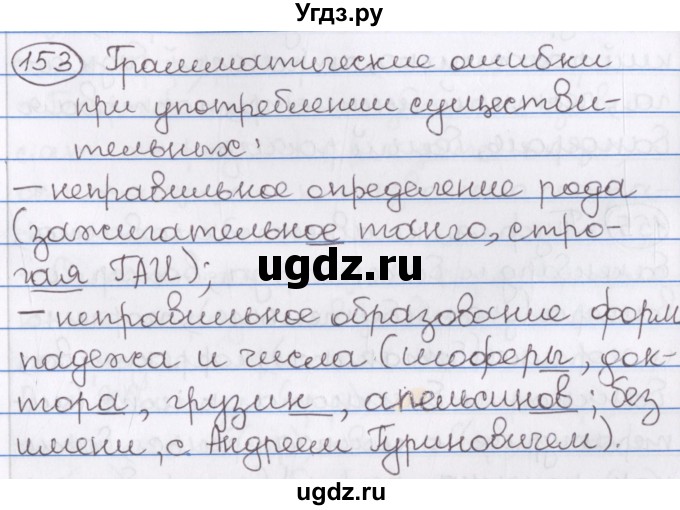 Угдз.ру
153 Грамматические ошибки
при употреблении существи-
тельных:
– неправильное определение рода
(зажигательное танго, стро-
гая ГАИ);
ugdz.ru
– неправильное образование форм
падежа и числа (шоферы, док-
тора, грузин, апельсинов; без
имени, с Андреем Гуриновичем).
ugdz.ru